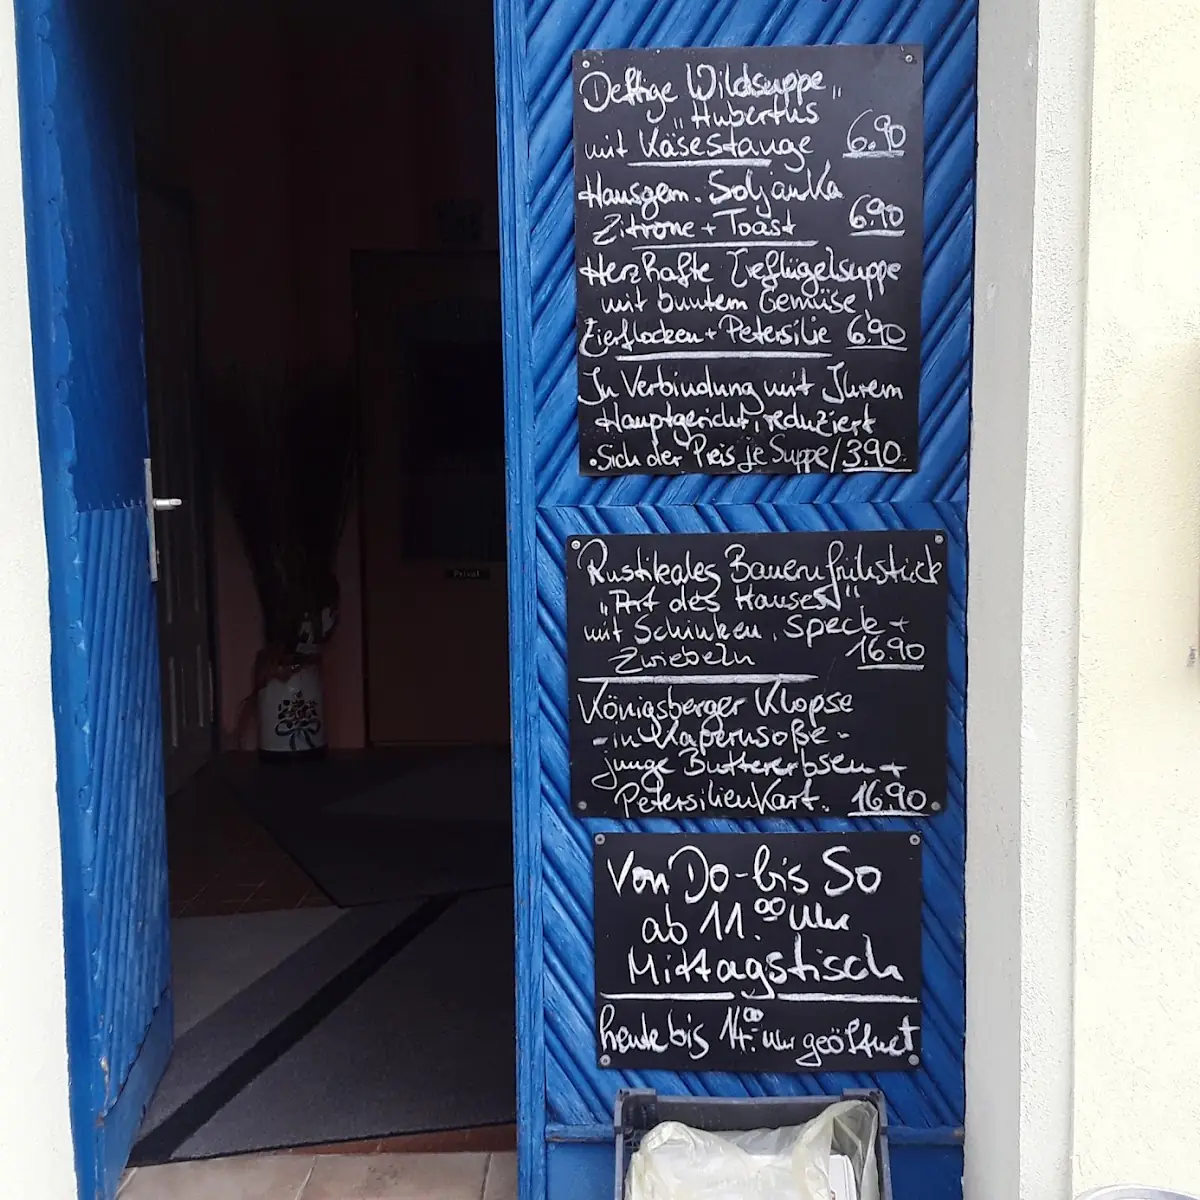 Deftige Wildsuppe
„Hubertus"
mit Käsestange 6.90
Hausgem. Soljanka
Zitrone + Toast 6.90
Herzhafte Geflügelsuppe
mit buntem Gemüse,
Eierflocken + Petersilie 6.90
In Verbindung mit Ihrem
Hauptgericht, reduziert
sich der Preis je Suppe / 3.90.
Rustikales Bauernfrühstück
„Art des Hauses"
mit Schinken, Speck +
Zwiebeln 16.90
Königsberger Klopse
- in Kapernsoße -
junge Buttererbsen +
Petersilienkart. 16.90
Von Do - bis So
ab 11.00 Uhr
Mittagstisch
heute bis 14.00 Uhr geöffnet
Privat